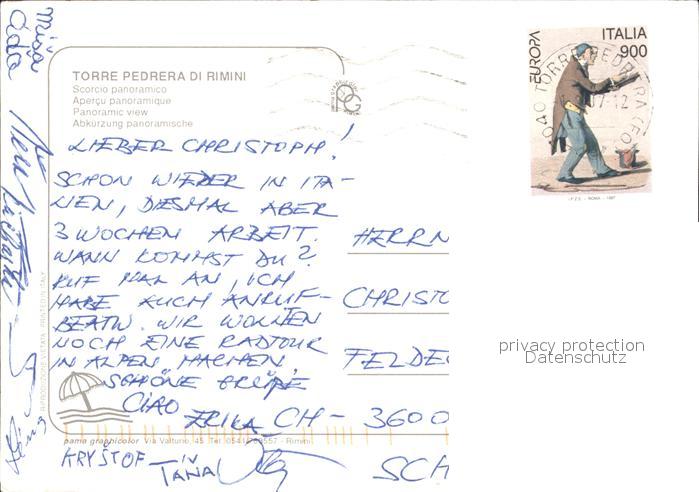 TORRE PEDRERA DI RIMINI
Scorcio panoramico
Aperçu panoramique
Panoramic view
Abkürzung panoramische
LIEBER CHRISTOPH!
SCHON WIEDER IN ITA-
LIEN, DIESMAL ABER
3 WOCHEN ARBEIT.
WANN KOMMST DU?
RUF MAL AN, ICH
HABE AUCH ANRUF-
BEATW. WIR WOLLEN
NOCH EINE RADTOUR
IN ALPEN MACHEN.
SCHÖNE GRÜßE
CIAO
ERIKA
KRYŠTOF
TÁNA
Miša
Ada
HERRN
CHRISTO
FELDE
CH - 3600
SCH
EUROPA
ITALIA
900
I.P.Z.S. - ROMA - 1997
RIPRODUZIONE VIETATA PRINTED IN ITALY
pama graphicolor Via Valturio, 45 Rimini
privacy protection
Datenschutz